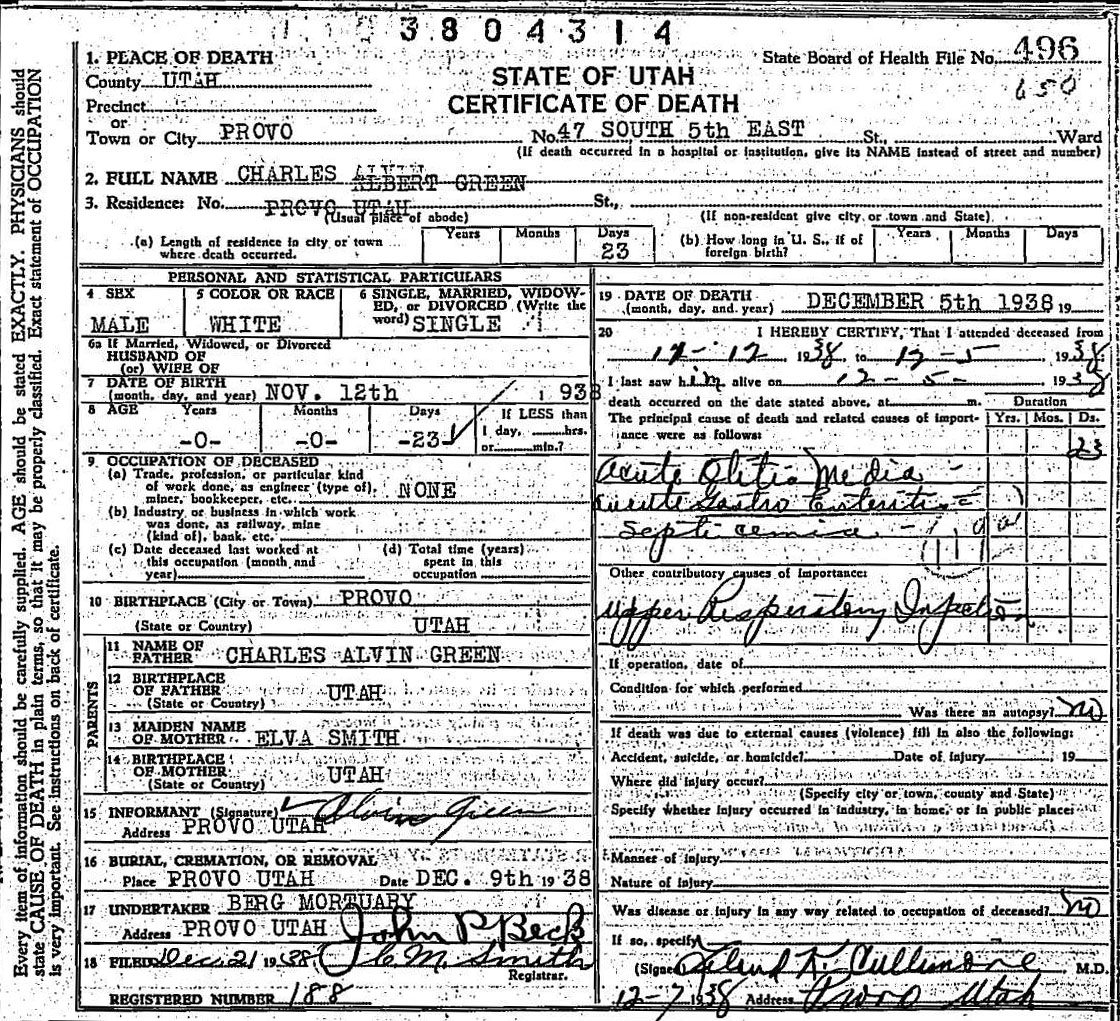 3 8 0 4 3 1 4
Every item of information should be carefully supplied. AGE should be stated EXACTLY. PHYSICIANS should
state CAUSE OF DEATH in plain terms, so that it may be properly classified. Exact statement of OCCUPATION
is very important. See instructions on back of certificate.
1. PLACE OF DEATH
State Board of Health File No. 496
County UTAH
STATE OF UTAH
650
Precinct
CERTIFICATE OF DEATH
or
Town or City PROVO No. 47 SOUTH 5th EAST St., Ward
(If death occurred in a hospital or institution, give its NAME instead of street and number)
2. FULL NAME CHARLES ALVIN
ALBERT GREEN
3. Residence: No. PROVO UTAH St.,
(Usual place of abode) (If non-resident give city or town and State)
(a) Length of residence in city or town where death occurred. Years Months Days 23
(b) How long in U. S., if of foreign birth? Years Months Days
PERSONAL AND STATISTICAL PARTICULARS
4 SEX MALE
5 COLOR OR RACE WHITE
6 SINGLE, MARRIED, WIDOWED, or DIVORCED (Write the word) SINGLE
6a If Married, Widowed, or Divorced
HUSBAND OF
(or) WIFE OF
7 DATE OF BIRTH
(month, day, and year) NOV. 12th 1 938
8 AGE Years Months Days If LESS than
1 day, hrs.
-0- -0- -23 or min.?
9 OCCUPATION OF DECEASED
(a) Trade, profession, or particular kind
of work done, as engineer (type of), NONE
miner, bookkeeper, etc.
(b) Industry or business in which work
was done, as railway, mine
(kind of), bank, etc.
(c) Date deceased last worked at
this occupation (month and
year)
(d) Total time (years)
spent in this
occupation
10 BIRTHPLACE (City or Town) PROVO
(State or Country) UTAH
PARENTS
11 NAME OF
FATHER CHARLES ALVIN GREEN
12 BIRTHPLACE
OF FATHER UTAH
(State or Country)
13 MAIDEN NAME
OF MOTHER ELVA SMITH
14 BIRTHPLACE
OF MOTHER UTAH
(State or Country)
15 INFORMANT (Signature) Alvin Green
Address PROVO UTAH
16 BURIAL, CREMATION, OR REMOVAL
Place PROVO UTAH Date DEC. 9th 19 38
17 UNDERTAKER BERG MORTUARY
Address PROVO UTAH John P Beck
18 FILED Dec. 21 19 38 C. M. Smith
Registrar.
REGISTERED NUMBER 188
19 DATE OF DEATH
(month, day, and year) DECEMBER 5th 1938 19
20 I HEREBY CERTIFY, That I attended deceased from
12-12 1938 to 12-5 1938
I last saw him alive on 12-5- 1938
death occurred on the date stated above, at m. Duration
The principal cause of death and related causes of import- Yrs. Mos. Ds.
ance were as follows: 23
Acute Otitis Media
acute Gastro Enteritis
septicemia
119
Other contributory causes of importance:
Upper Respiratory Infection
If operation, date of
Condition for which performed
Was there an autopsy? no
If death was due to external causes (violence) fill in also the following:
Accident, suicide, or homicide? Date of injury 19
Where did injury occur?
(Specify city or town, county and State)
Specify whether injury occurred in industry, in home, or in public place:
Manner of injury
Nature of injury
Was disease or injury in any way related to occupation of deceased? no
If so, specify
(Signed) K. Cullimore M.D.
12-7 1938 Address Provo Utah